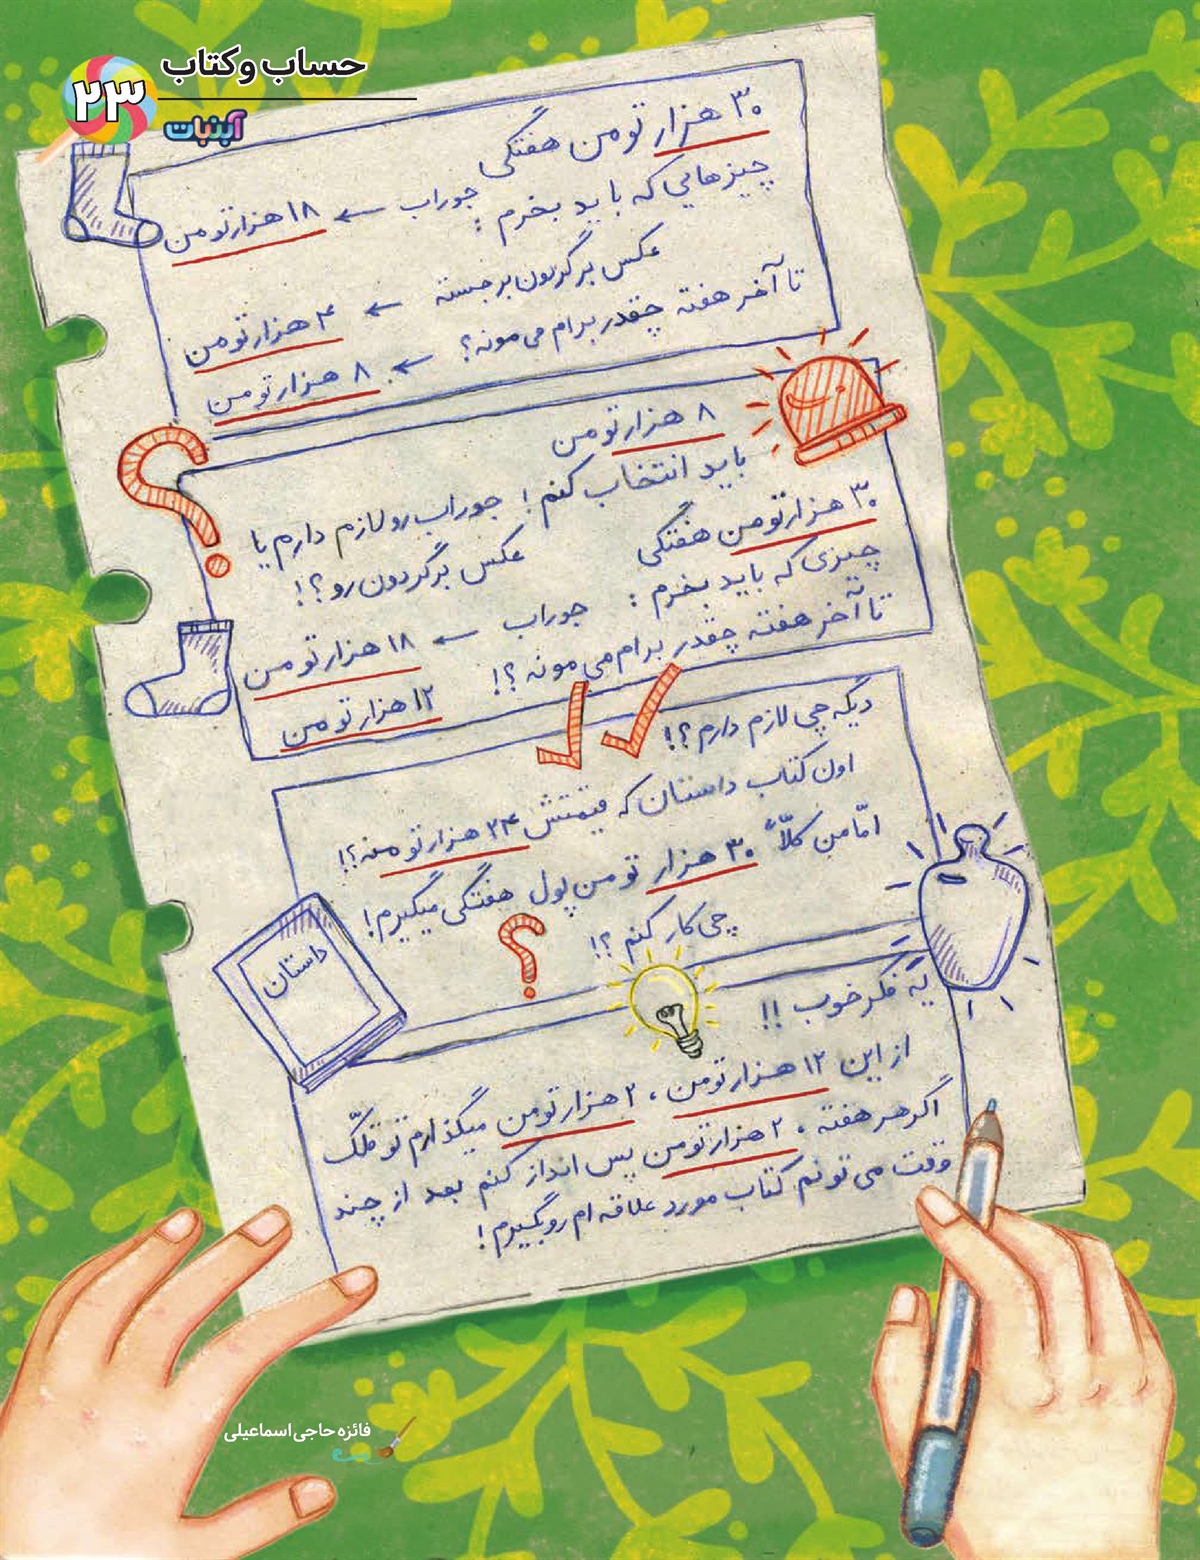 حساب و کتاب
۲۳
آبنبات
۳۰ هزار تومن هفتگی
چیزهایی که باید بخرم :
جوراب ← ۱۸ هزار تومن
عکس برگردون برجسته ← ۴ هزار تومن
تا آخر هفته چقدر برام می مونه؟ ← ۸ هزار تومن
۸ هزار تومن
باید انتخاب کنم! جوراب رو لازم دارم یا
عکس برگردون رو؟!
۳۰ هزار تومن هفتگی
چیزی که باید بخرم : جوراب ← ۱۸ هزار تومن
تا آخر هفته چقدر برام می مونه؟! ۱۲ هزار تومن
دیگه چی لازم دارم؟!
اون کتاب داستان که قیمتش ۲۴ هزار تومنه؟!
امّا من کلّاً ۳۰ هزار تومن پول هفتگی میگیرم!
چی کار کنم؟!
داستان
یه فکر خوب !!
از این ۱۲ هزار تومن، ۲ هزار تومن میگذارم تو قلّک
اگر هر هفته ۲ هزار تومن پس انداز کنم بعد از چند
وقت می تونم کتاب مورد علاقه ام رو بگیرم!
فائزه حاجی اسماعیلی